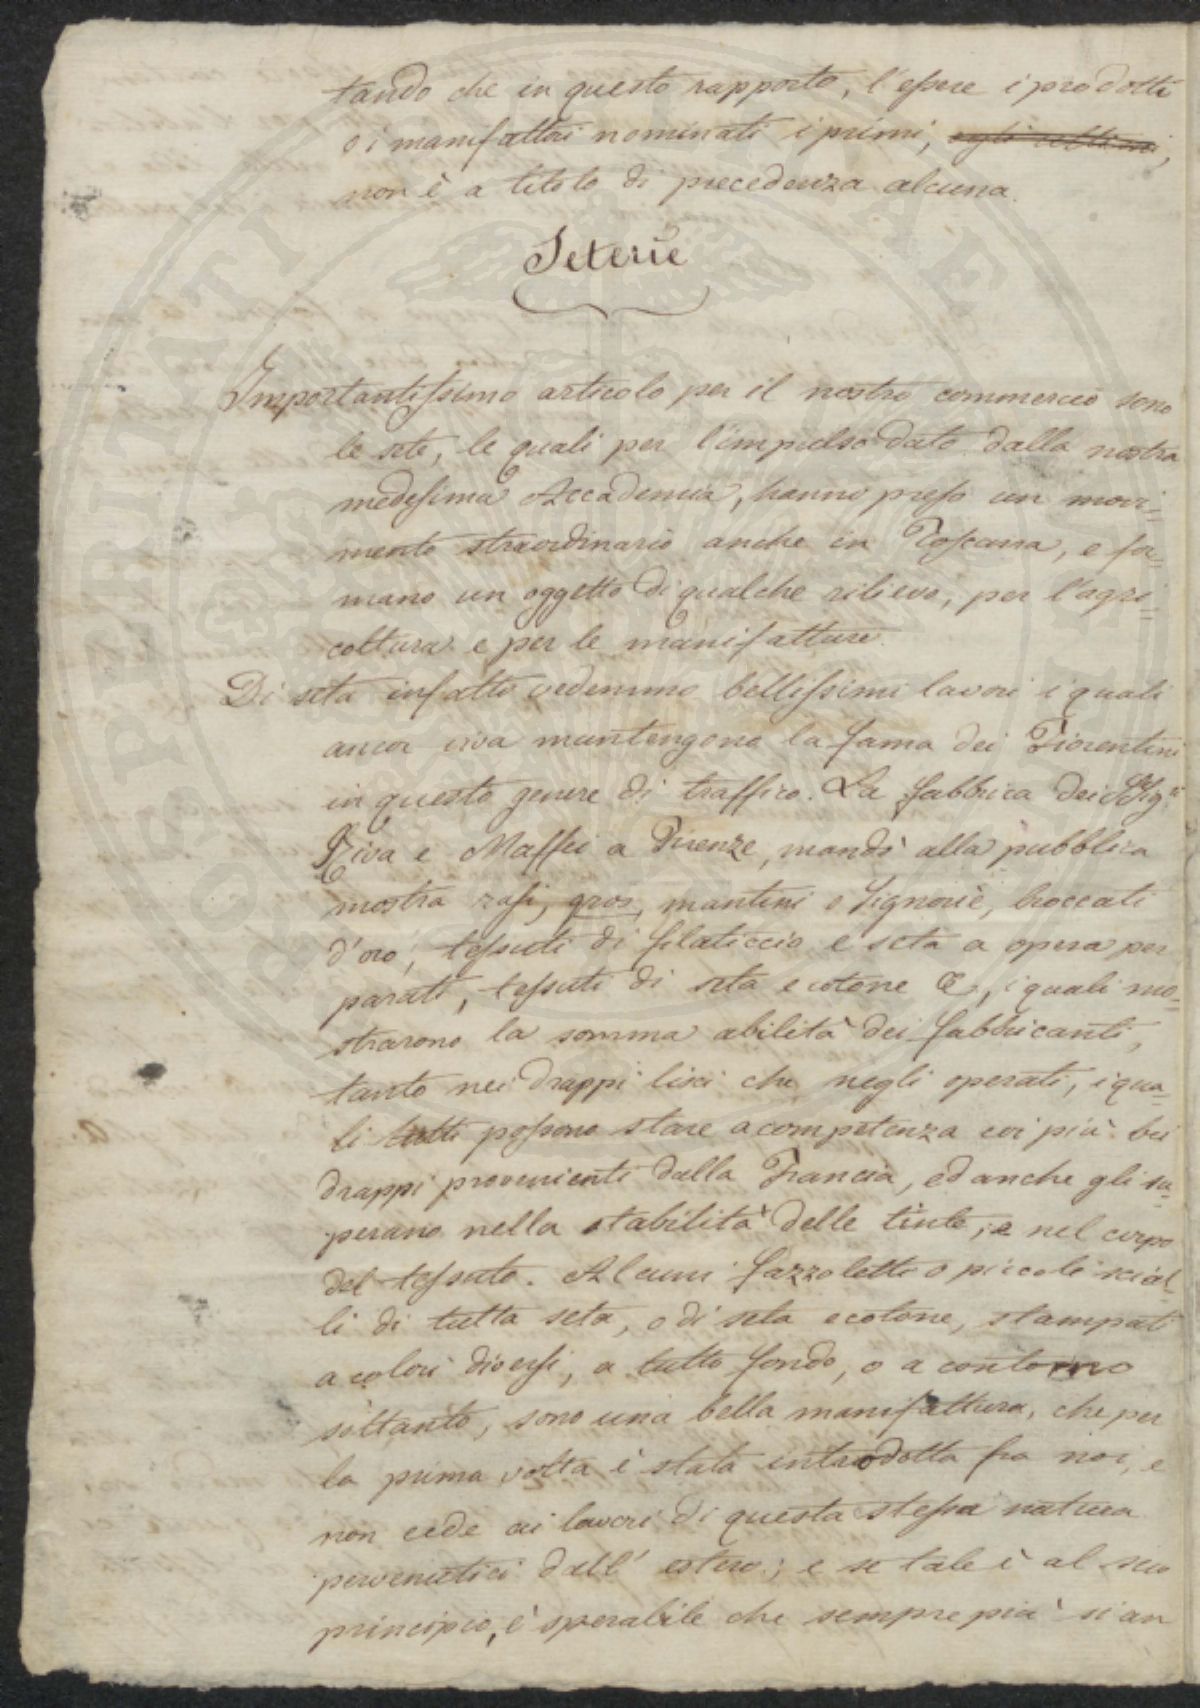 tando che in questo rapporto, l'essere i prodotti
o i manifattori nominati i primi,
non è a titolo di precedenza alcuna.
Seterie
Importantissimo articolo per il nostro commercio sono
le sete, le quali per l'impulso dato dalla nostra
medesima Accademia, hanno preso un movi-
mento straordinario anche in Toscana, e for-
mano un oggetto di qualche rilievo, per l'agri-
coltura e per le manifatture.
Di seta infatti vedemmo bellissimi lavori i quali
ancor viva mantengono la fama dei Fiorentini
in questo genere di traffico. La fabbrica dei Sigri
Riva e Maffei a Firenze, mandò alla pubblica
mostra rasi, gros, mantini o Signorie, broccati
d'oro, tessuti di filaticcio e seta a opera per
parati, tessuti di seta e cotone &, i quali mo-
strarono la somma abilità dei fabbricanti,
tanto nei drappi lisci che negli operati, i qua-
li tutti possono stare a competenza coi più bei
drappi provenienti dalla Francia, ed anche gli su-
perano nella stabilità delle tinte, e nel corpo
del tessuto. Alcuni fazzoletti o piccoli scial-
li di tutta seta, o di seta e cotone, stampati
a colori diversi, a tutto fondo, o a contorno
soltanto, sono una bella manifattura, che per
la prima volta è stata introdotta fra noi, e
non cede ai lavori di questa stessa natura
pervenutici dall'estero; e se tale è al suo
principio, è sperabile che sempre più si an
PROSPERITATI AUGENDAE